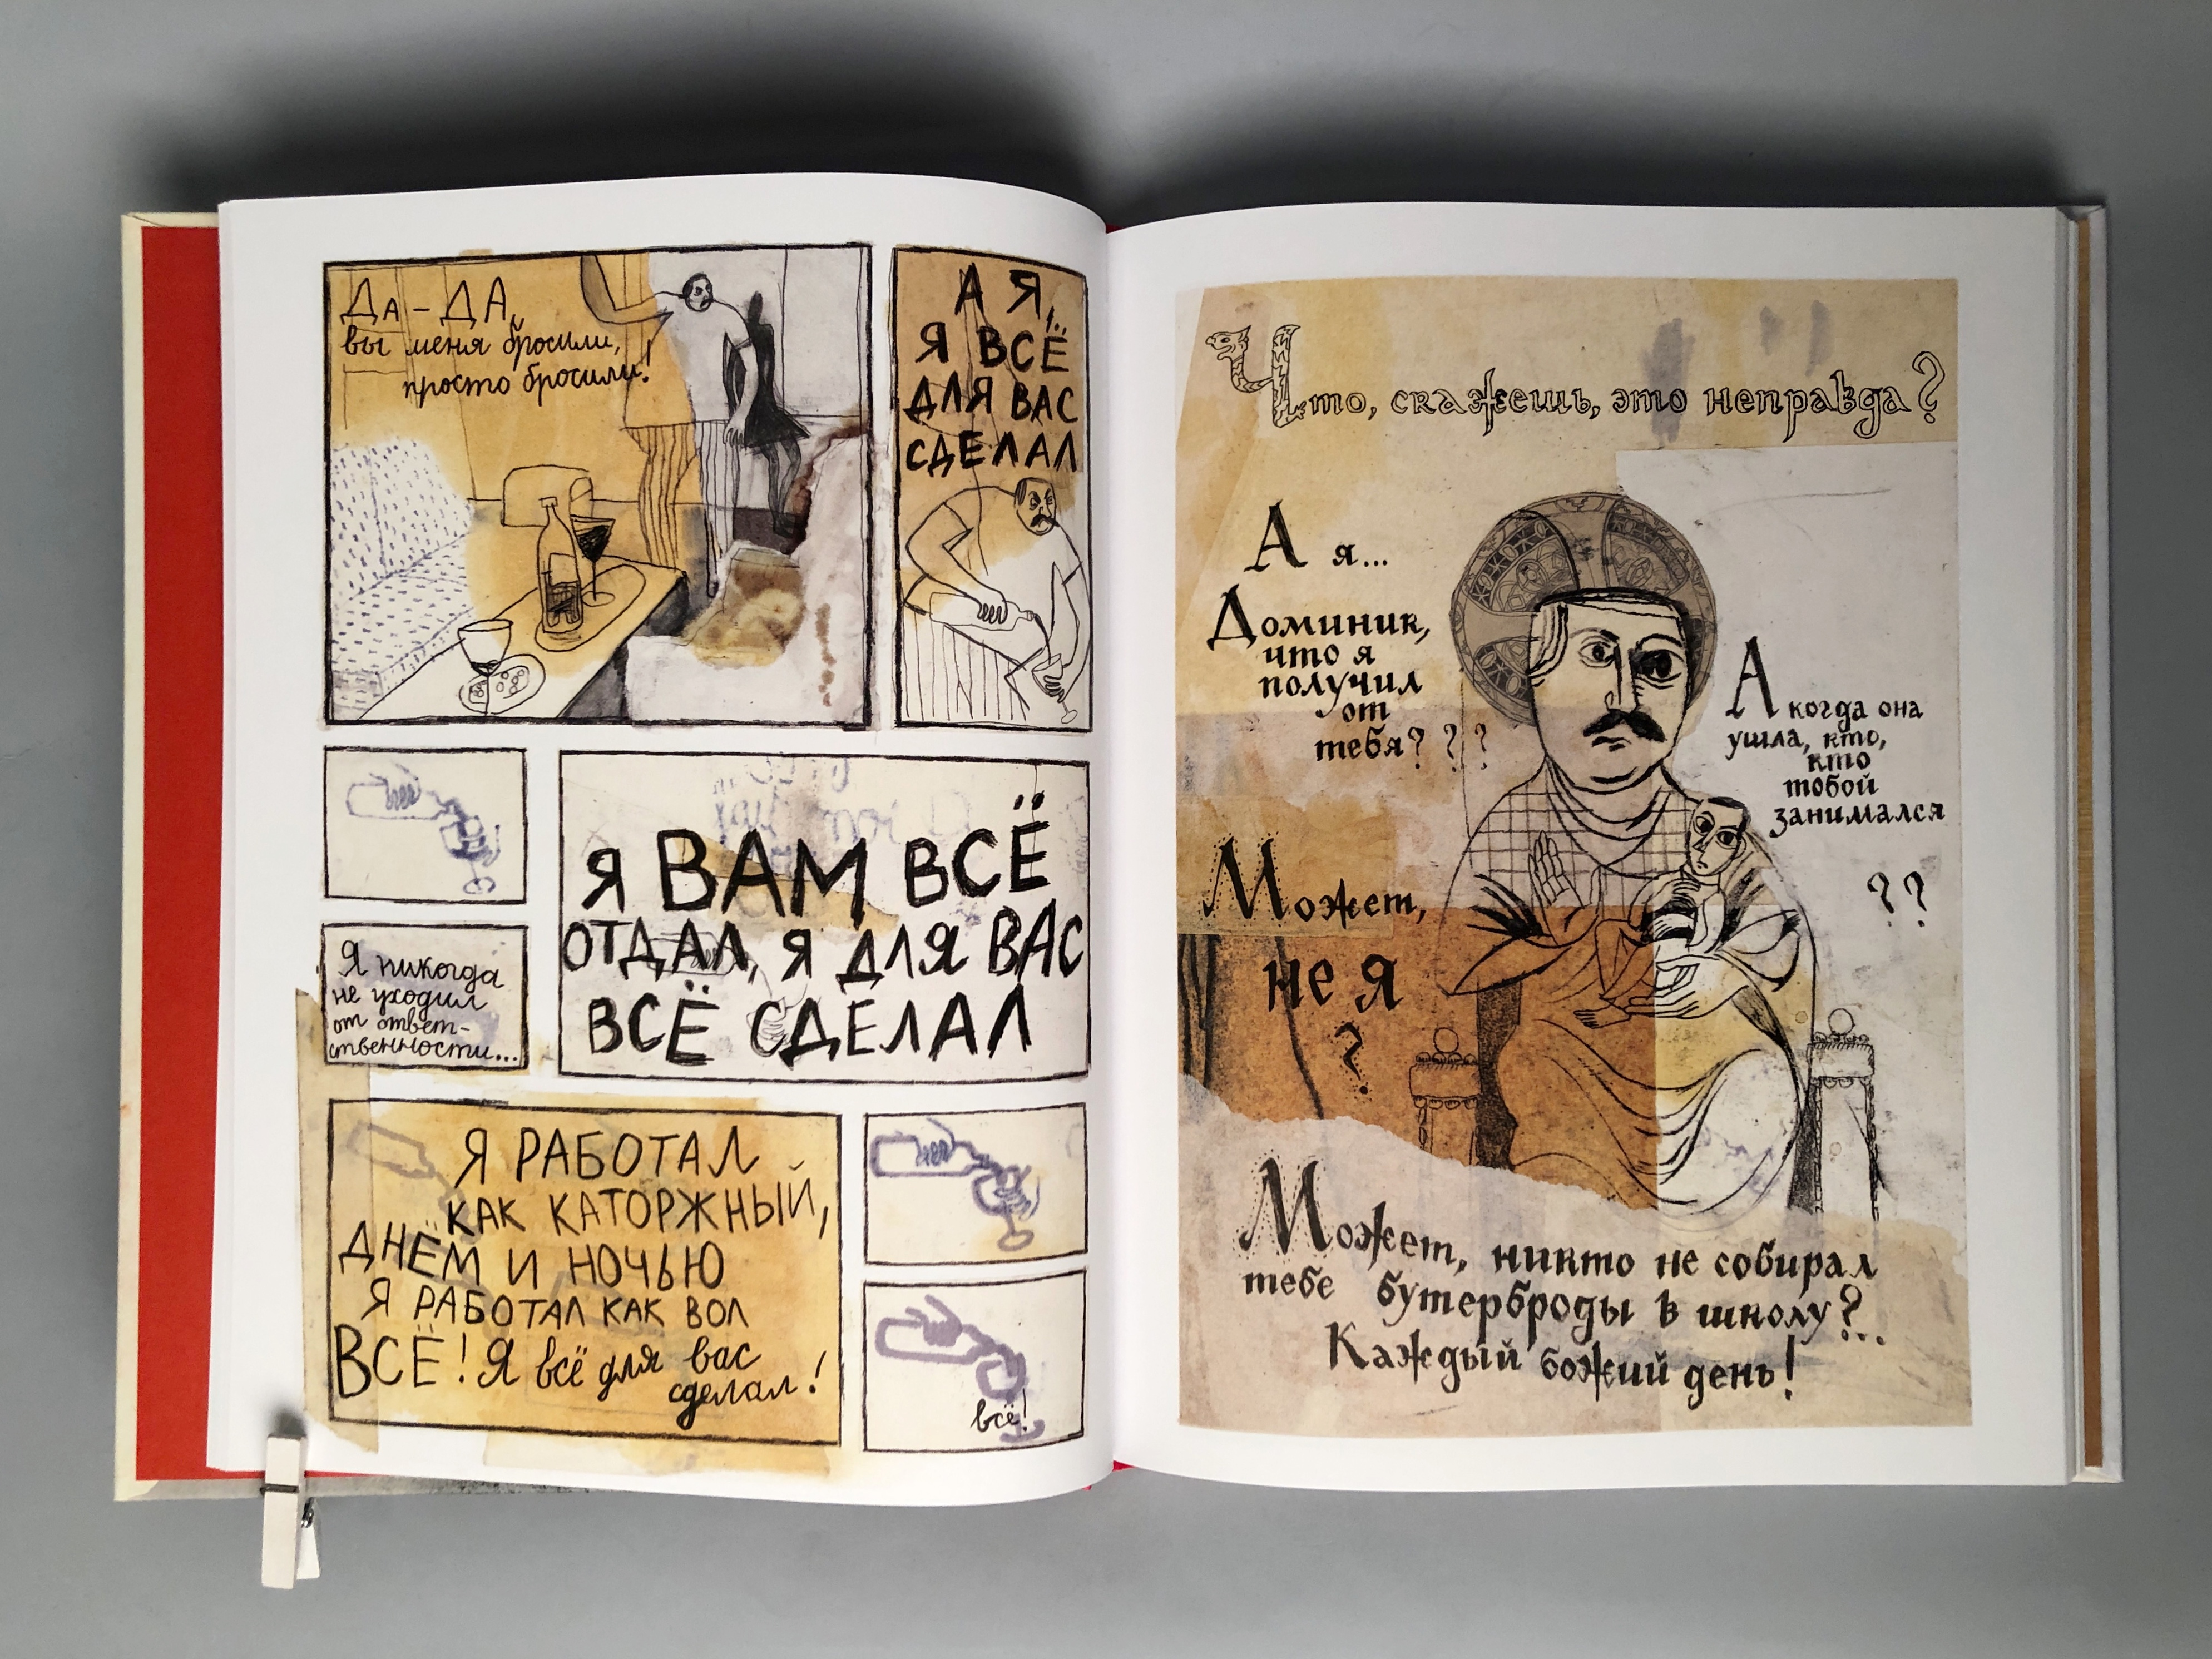 Да - ДА,
вы меня бросили,
просто бросили!
А Я,
Я ВСЁ
ДЛЯ ВАС
СДЕЛАЛ
Я ВАМ ВСЁ
ОТДАЛ, Я ДЛЯ ВАС
ВСЁ СДЕЛАЛ
Я никогда
не уходил
от ответ-
ственности...
Я РАБОТАЛ
КАК КАТОРЖНЫЙ,
ДНЁМ И НОЧЬЮ
Я РАБОТАЛ КАК ВОЛ
ВСЁ! Я всё для вас
сделал!
всё!
Что, скажешь, это неправда?
А я...
Доминик,
что я
получил
от
тебя? ? ?
А когда она
ушла, кто,
кто
тобой
занимался
? ?
Может,
не я
?
Может, никто не собирал
тебе бутерброды в школу?...
Каждый божий день!